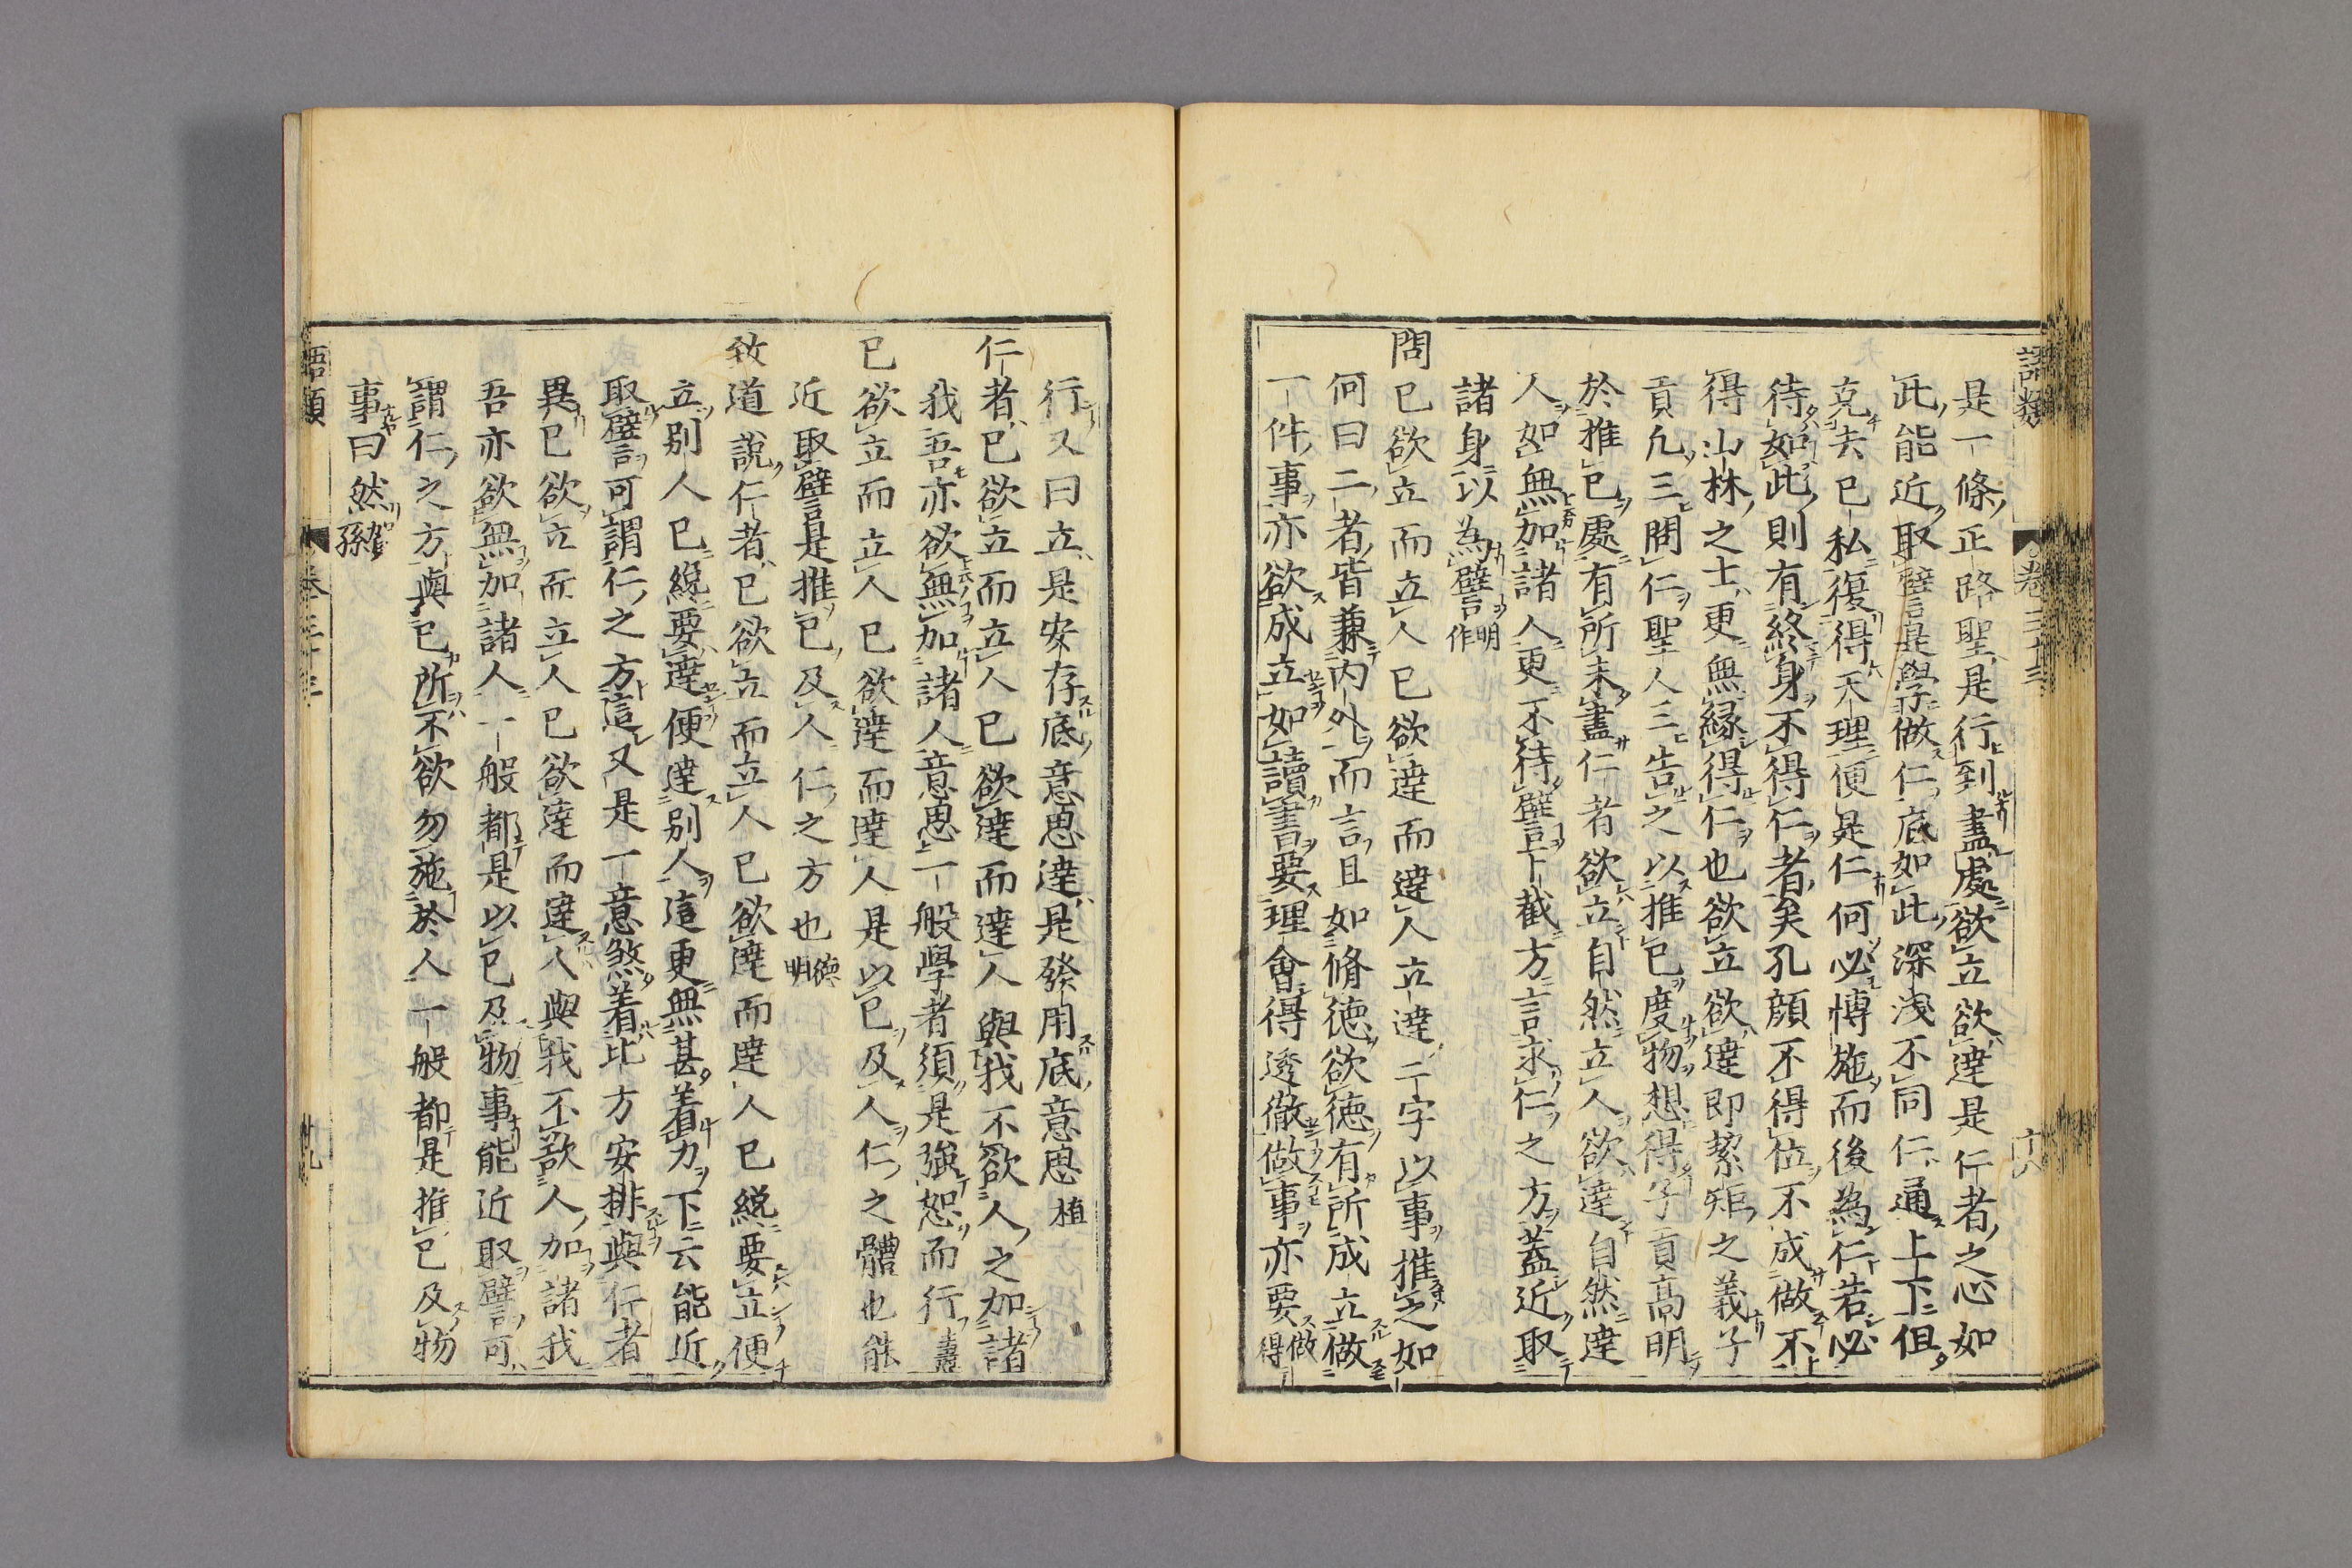 語類
卷三十三
十八
是一條正路聖是行到盡處欲立欲達是仁者之心如
此能近取譬是學做仁底如此深淺不同仁通上下但
克去己私復得天理便是仁何必博施而後為仁若必
待如此則有終身不得仁者矣孔顏不得位不成做不
得山林之士更無緣得仁也欲立欲達即絜矩之義子
貢凡三問仁聖人三告之以推己度物想得子貢高明
於推己處有所未盡仁者欲立自然立人欲達自然達
人如無加諸人更不待譬下截方言求仁之方蓋近取
諸身以為譬明作
問己欲立而立人己欲達而達人立達二字以事推之如
何曰二者皆兼内外而言且如脩德欲德有所成立做
一件事亦欲成立如讀書要理會得透徹做事亦要做得
行又曰立是安存底意思達是發用底意思植
仁者己欲立而立人己欲達而達人與我不欲人之加諸
我吾亦欲無加諸人意思一般學者須是強恕而行燾
己欲立而立人己欲達而達人是以己及人仁之體也能
近取譬是推己及人仁之方也德明
致道說仁者己欲立而立人己欲達而達人己纔要立便
立別人己纔要達便達別人這更無甚著力下云能近
取譬可謂仁之方這又是一意煞著比方安排與仁者
異己欲立而立人己欲達而達人與我不欲人加諸我
吾亦欲無加諸人一般都是以己及物事能近取譬可
謂仁之方與己所不欲勿施於人一般都是推己及物
事曰然賀孫
語類
卷三十三
十九